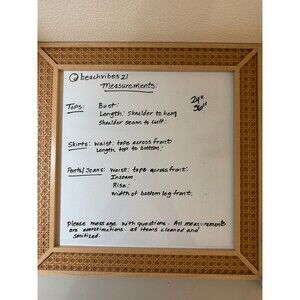 @beachvibes21
Measurements:
Tops: Bust:
Length: Shoulder to hem
Shoulder seam to cuff.
24"
36"
Skirts: Waist: tape across front
Length top to bottom:
Pants/Jeans: Waist: tape across front:
Inseam
Rise:
Width of bottom leg front:
Please message with questions. All measurements
are approximations. all items cleaned and
sanitized.